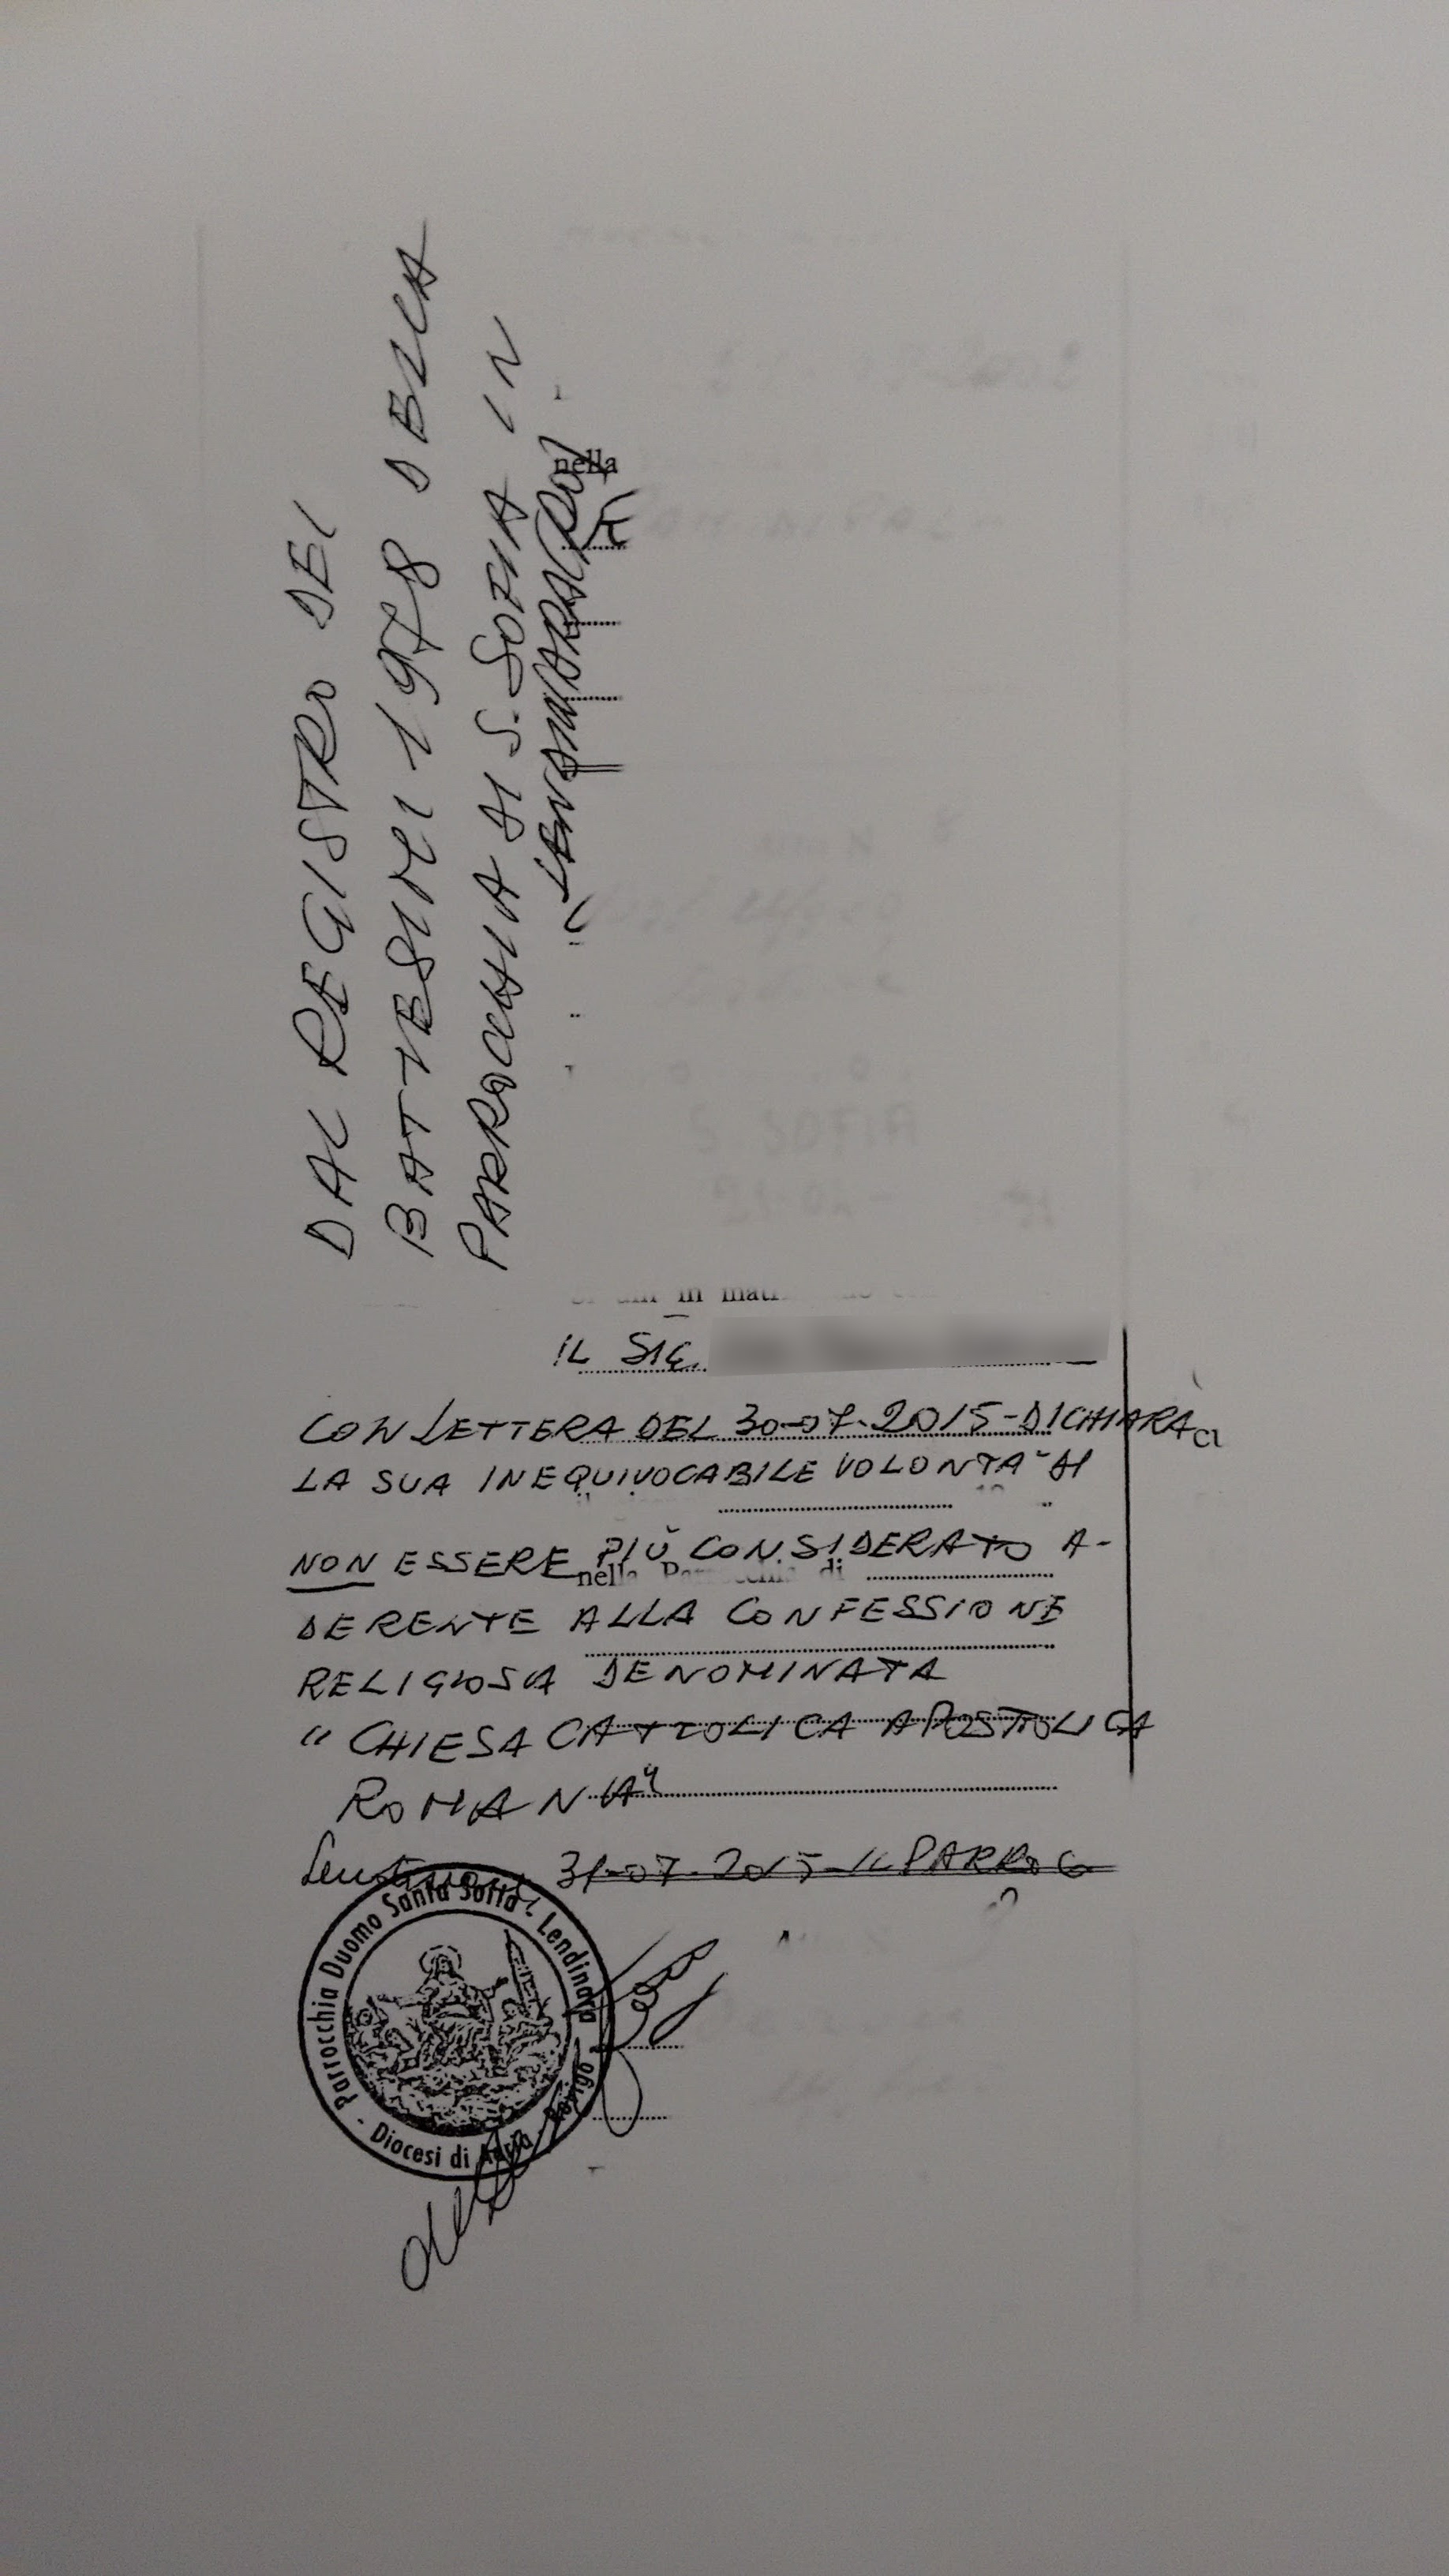 DAL REGISTRO DEI
BATTESIMI 1978 DELLA
PARROCCHIA DI S. SOFIA IN
LENDINARA (RO)
nella
S SOFIA
in
IL SIG.
CON LETTERA DEL 30-07-2015-DICHIARA
CI
LA SUA INEQUIVOCABILE VOLONTA' DI
NON ESSERE PIÙ CONSIDERATO A-
nella di
DERENTE ALLA CONFESSIONE
RELIGIOSA DENOMINATA
"CHIESA CATTOLICA APOSTOLICA
ROMANA"
Lendinara 31-07-2015-IL PARROCO
Parrocchia Duomo Santa Sofia - Lendinara
- Diocesi di Adria - Rovigo